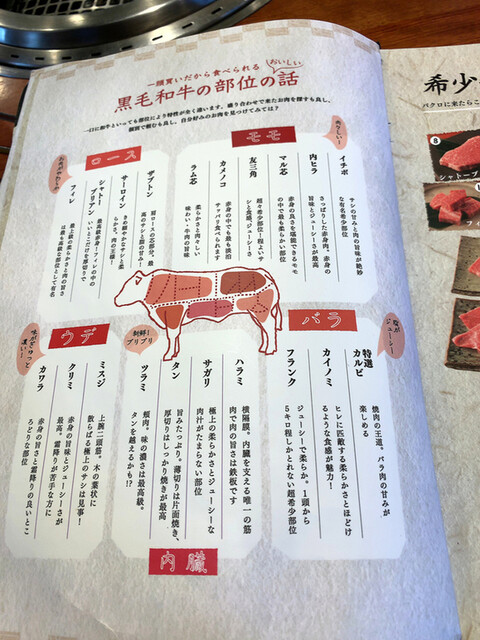 一頭買いだから食べられる
おいしい
黒毛和牛の部位の話
一口に和牛といっても部位により特性が全く違います。盛り合わせで来たお肉を探すも良し、
個別で頼むも良し、自分好みのお肉を見つけてみては?
ロース
ザブトン
肩ロースの芯部分。最
高のサシと脂の甘み。
サーロイン
きめ細やかなサシと柔
らかさ。肉の王様!
シャトー
ブリアン
最高級赤身!フィレの中の
いいとこだけを厚切りで
フィレ
抜群の柔らかさと肉の旨さ
は最も高級な部位として有名
モモ
イチボ
サシの甘みと肉の旨味が絶妙
な有名希少部位
内ヒラ
さっぱりした赤身肉。赤身の
旨味とジューシーさが最高
マル芯
赤身の良さを堪能できるモモ
の中で最も柔らかい部位
友三角
超々希少部位!程よいサ
シと食感、ジューシさ
カメノコ
赤身の中でも最も淡泊
サッパリ食べられます
ラム芯
柔らかさと肉々しい
味わい・牛肉の旨味
ウデ
味がぎゅっと
濃い~!
ミスジ
上腕二頭筋。木の葉状に
散らばる極上のサシは見事!
クリミ
赤身の旨味とジューシーさが
最高。霜降りが苦手な方に
カワラ
赤身の旨さと霜降りの良いとこ
ろどりな部位
新鮮!
プリプリ
ハラミ
横隔膜。内臓を支える唯一の筋
肉で肉の旨さは鉄板です
サガリ
極上の柔らかさとジューシーな
肉汁がたまらない部位
タン
旨みたっぷり。薄切りは片面焼き、
厚切りはしっかり焼きが最高
ツラミ
頬肉。味の濃さは最高級。
タンを越えるかも!?
内臓
バラ
ジューシー
特選
カルビ
焼肉の王道。バラ肉の甘みが
楽しめる
カイノミ
ヒレに匹敵する柔らかさとほどけ
るような食感が魅力!
フランク
ジューシーで柔らか。1頭から
5キロ程しかとれない超希少部位
希少
パクロに来たらこ
8
シャトーブ